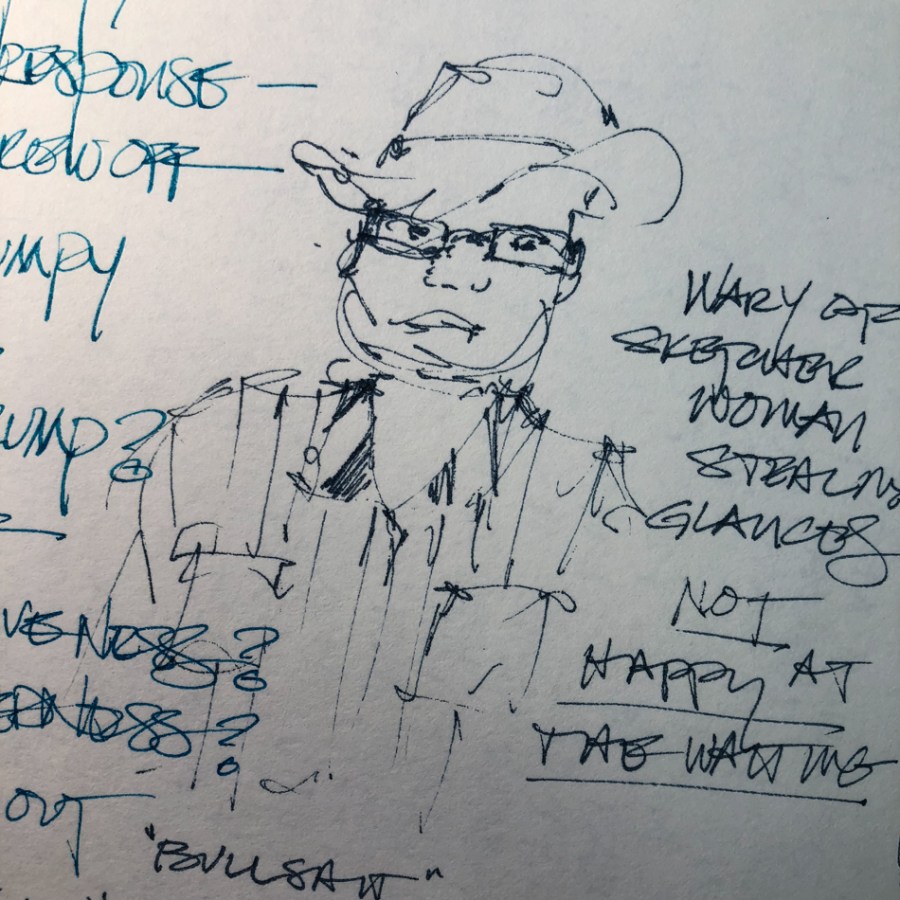 RESPONSE —
REW OFF —
UMPY
UMP?
VENESS?
ERNESS?
OUT
"BULLSHIT"
WARY OF
SKETCHER
WOMAN
STEALING
GLANCES
NOT
HAPPY AT
THE WAITING